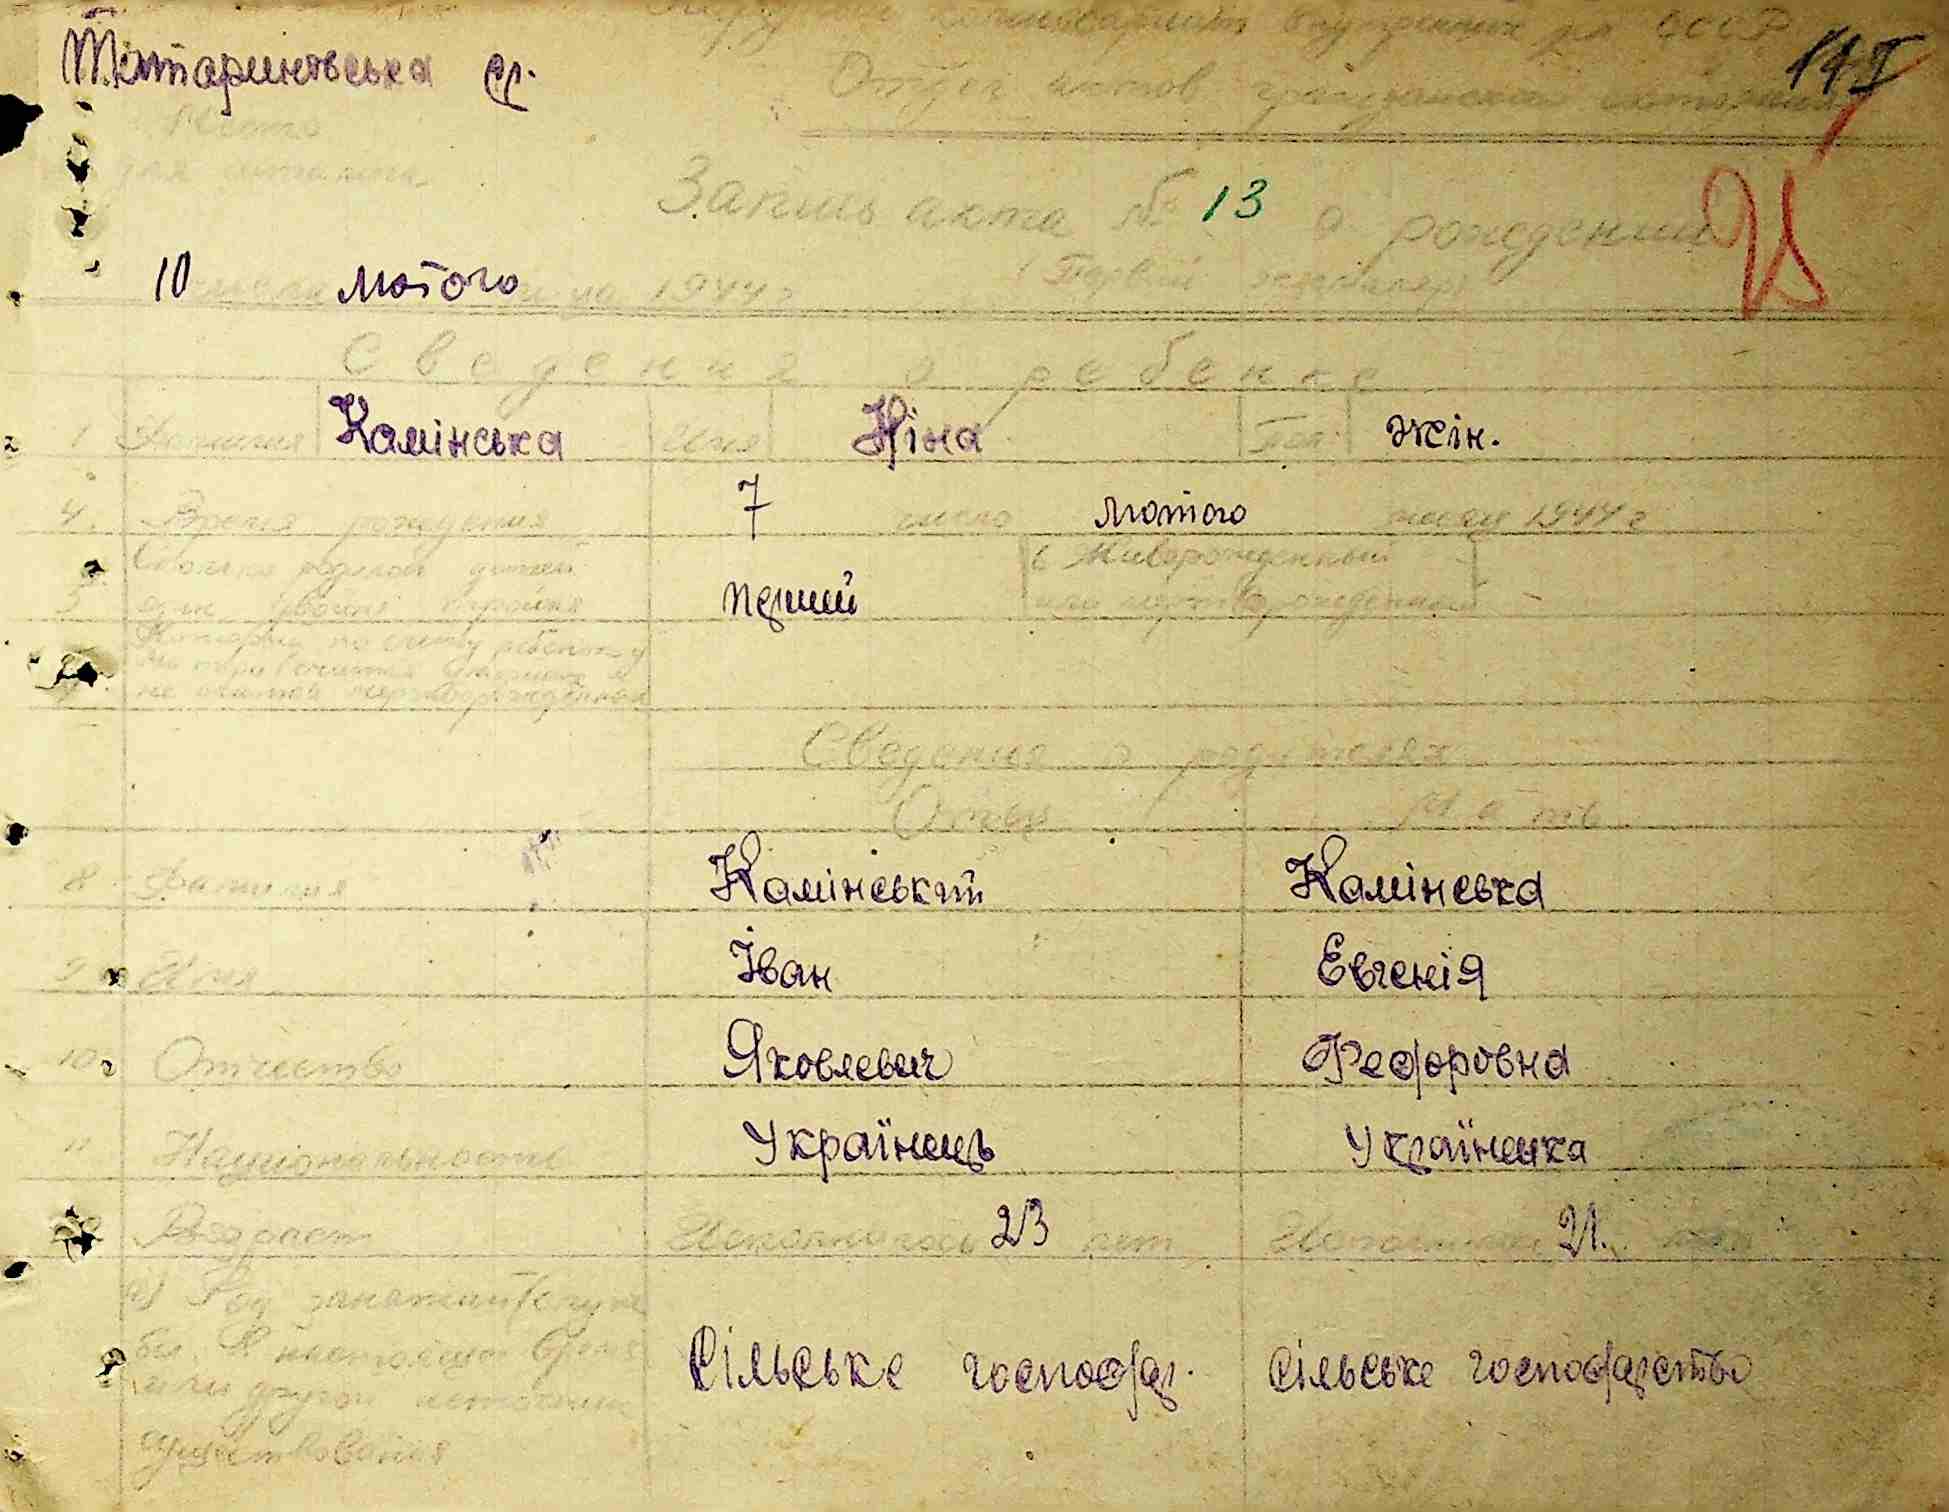 Татариновська ср.
внутренних дел СССР
14 I
Отдел актов гражданского состояния
Место
для штампа
Запись акта № 13 о рождении
21
10 лютого 1944 г
(Первый экземпляр)
Сведения о ребенке
1 Фамилия Камінська Имя Ніна Пол жін.
4. Время рождения 7 число лютого месяца 1944 г
Сколько родилось детей 6 Живорожденный
5 один двойня тройня перший или мертворожденный
Который по счету ребенок у
матери считая умерших и
не считая мертворожденных
Сведения о родителях
Отец Мать
8 Фамилия Камінський Камінська
9 Имя Іван Евгенія
10 Отчество Яковлевич Федоровна
11 Национальность Українець Українка
Возраст Исполнилось 23 лет Исполнилось 21. лет
а) Род занятий
в настоящее время
или другой источник Сільське господар. сільське господарство
существования